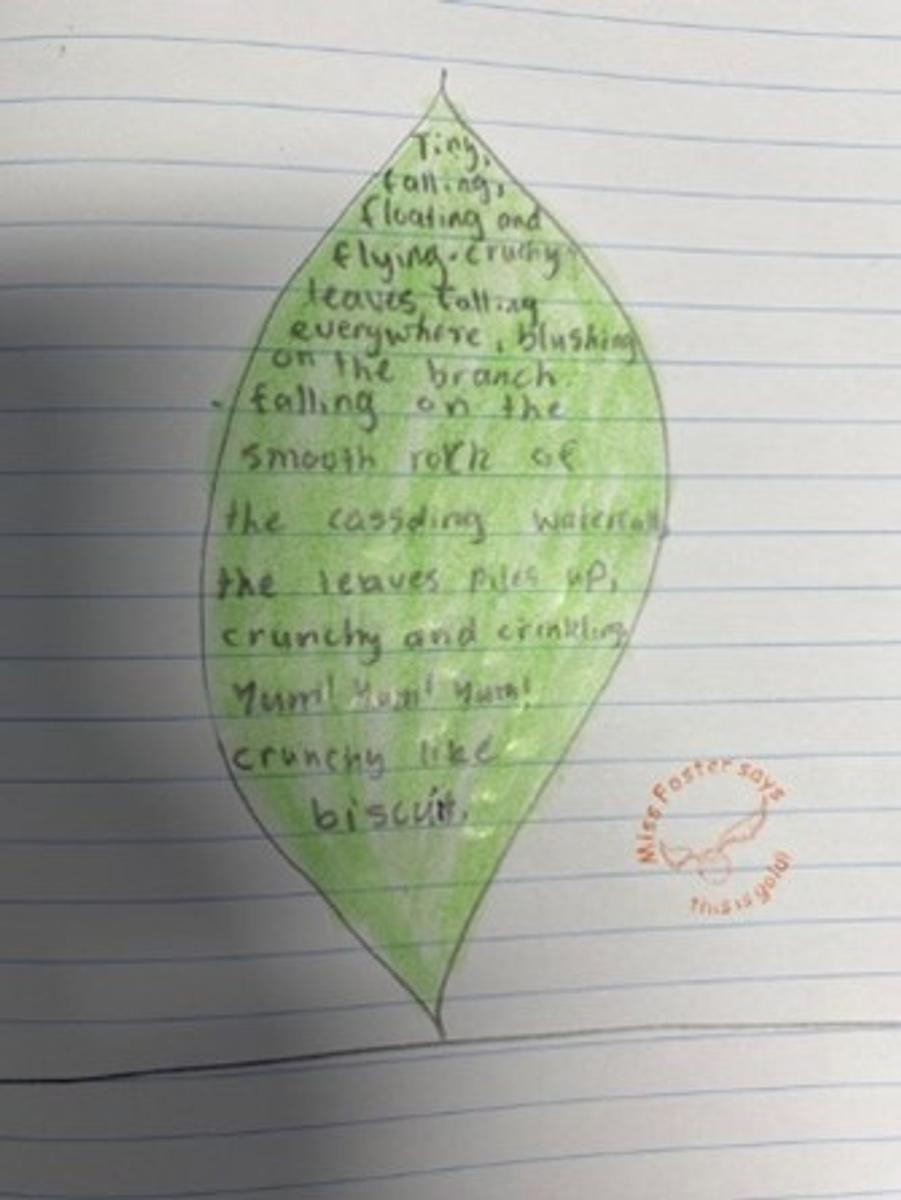 Tiny,
falling,
floating and
flying. cruchy
leaves falling
everywhere, blushing
on the branch.
falling on the
smooth rock of
the cassding waterfall,
the leaves piles up,
crunchy and crinkling
Yum! Yum! Yum!
crunchy like
biscuit.
Miss Foster says
this is gold!